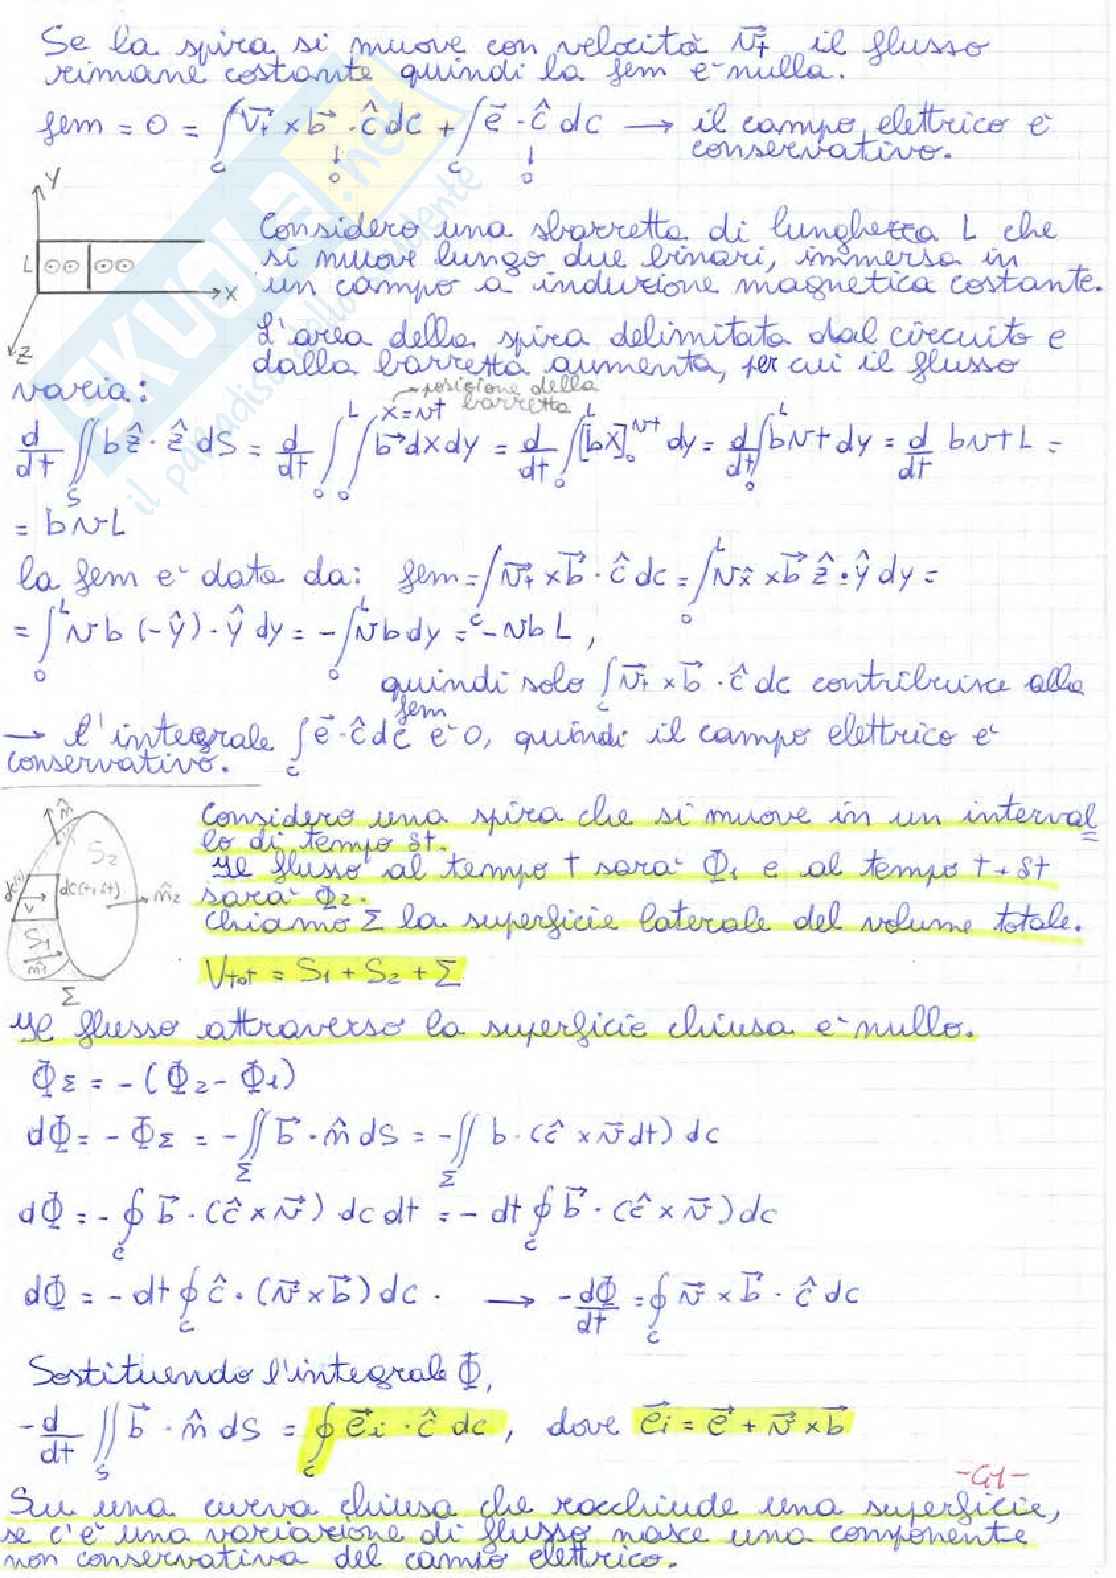 Se la spira si muove con velocità v⃗t il flusso
rimane costante quindi la fem è nulla.
fem = 0 = ∫c v⃗t × b⃗ · ĉ dc + ∫c e⃗ · ĉ dc → il campo elettrico è
conservativo.
↓ 0 ↓ 0
Y
L ⊙⊙ ⊙⊙
X
Z
Considero una sbarretta di lunghezza L che
si muove lungo due binari, immersa in
un campo a induzione magnetica costante.
L'area della spira delimitata dal circuito e
dalla barretta aumenta, per cui il flusso
varia:
→ posizione della
barretta
d/dt ∬S b ẑ · ẑ dS = d/dt ∫0^L ∫0^x=vt b⃗ dx dy = d/dt ∫0^L [bx]0^vt dy = d/dt ∫0^L bvt dy = d/dt bvtL =
= bvL
la fem è data da: fem = ∫c v⃗t × b⃗ · ĉ dc = ∫0^L v x̂ × b⃗ ẑ · ŷ dy =
= ∫0^L vb (-ŷ) · ŷ dy = - ∫0^L vb dy = -vbL,
quindi solo ∫c v⃗t × b⃗ · ĉ dc contribuisce alla
fem
→ l'integrale ∫c e⃗ · ĉ dc è 0, quindi il campo elettrico è
conservativo.
n̂
S2
dc(t) dc(t+δt) n̂2
v
S1
n̂1
Σ
Considero una spira che si muove in un interval
lo di tempo δt.
Il flusso al tempo t sarà Φ1 e al tempo t+δt
sarà Φ2.
Chiamo Σ la superficie laterale del volume totale.
Vtot = S1 + S2 + Σ
Il flusso attraverso la superficie chiusa è nullo.
ΦΣ = -(Φ2 - Φ1)
dΦ = -ΦΣ = -∬Σ b⃗ · n̂ dS = -∬Σ b · (ĉ × v⃗ dt) dc
dΦ = -∮c b⃗ · (ĉ × v⃗) dc dt = -dt ∮c b⃗ · (ĉ × v⃗) dc
dΦ = -dt ∮c ĉ · (v⃗ × b⃗) dc . → -dΦ/dt = ∮c v⃗ × b⃗ · ĉ dc
Sostituendo l'integrale Φ,
-d/dt ∬S b⃗ · n̂ dS = ∮c e⃗i · ĉ dc, dove e⃗i = e⃗ + v⃗ × b⃗
Su una curva chiusa che racchiude una superficie,
se c'è una variazione di flusso nasce una componente
non conservativa del campo elettrico.
SKUOLA.net
il paradiso dello studente